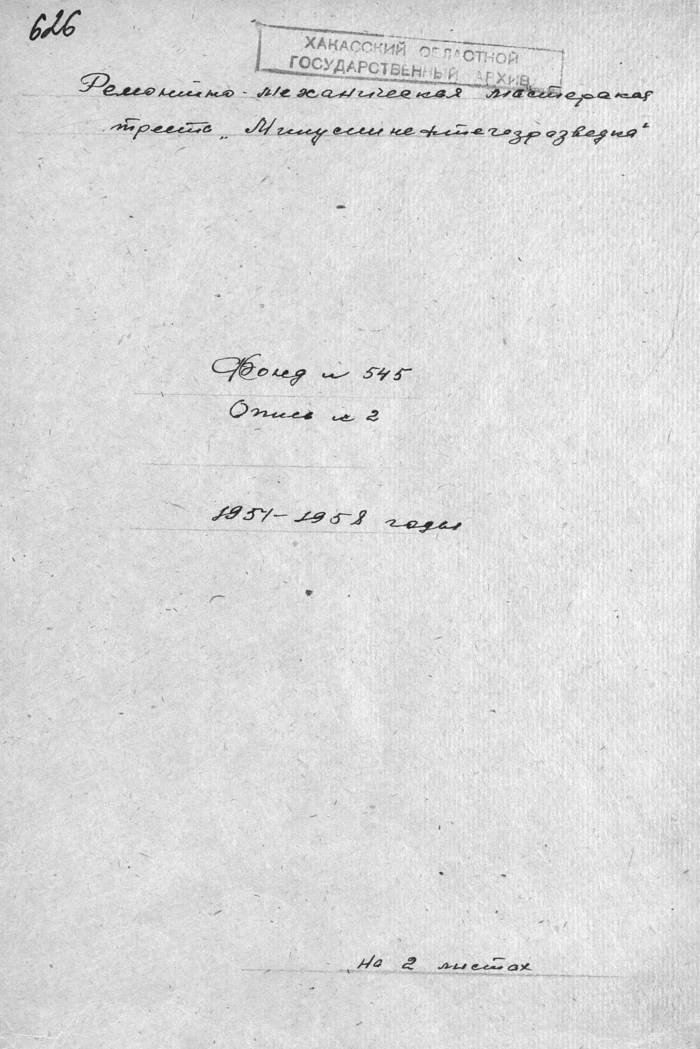 626
ХАКАССКИЙ ОБЛАСТНОЙ
ГОСУДАРСТВЕННЫЙ АРХИВ
Ремонтно-механическая мастерская
треста „Минусинефтегазразведка"
Фонд № 545
Опись № 2
1951-1958 годы
на 2 листах